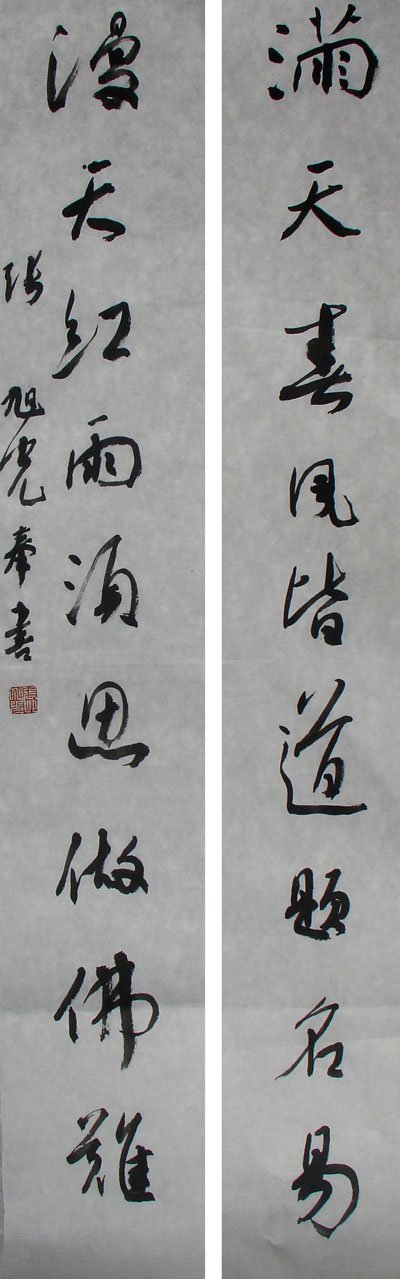 滿天春風皆道題名易
漫天紅雨須思做佛難
張旭光奉書